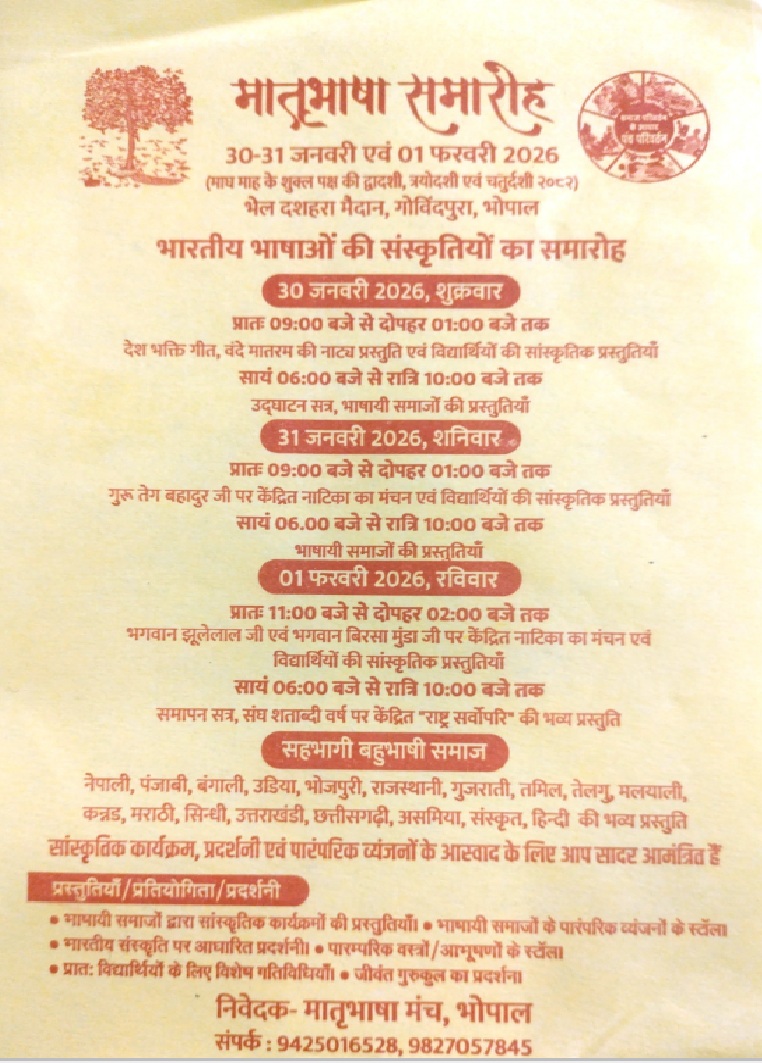 मातृभाषा समारोह
समाज परिवर्तन
पंच परिवर्तन
30-31 जनवरी एवं 01 फरवरी 2026
(माघ माह के शुक्ल पक्ष की द्वादशी, त्रयोदशी एवं चतुर्दशी २०८२)
भेल दशहरा मैदान, गोविंदपुरा, भोपाल
भारतीय भाषाओं की संस्कृतियों का समारोह
30 जनवरी 2026, शुक्रवार
प्रातः 09:00 बजे से दोपहर 01:00 बजे तक
देश भक्ति गीत, वंदे मातरम की नाट्य प्रस्तुति एवं विद्यार्थियों की सांस्कृतिक प्रस्तुतियाँ
सायं 06:00 बजे से रात्रि 10:00 बजे तक
उद्घाटन सत्र, भाषायी समाजों की प्रस्तुतियाँ
31 जनवरी 2026, शनिवार
प्रातः 09:00 बजे से दोपहर 01:00 बजे तक
गुरू तेग बहादुर जी पर केंद्रित नाटिका का मंचन एवं विद्यार्थियों की सांस्कृतिक प्रस्तुतियाँ
सायं 06.00 बजे से रात्रि 10:00 बजे तक
भाषायी समाजों की प्रस्तुतियाँ
01 फरवरी 2026, रविवार
प्रातः 11:00 बजे से दोपहर 02:00 बजे तक
भगवान झूलेलाल जी एवं भगवान बिरसा मुंडा जी पर केंद्रित नाटिका का मंचन एवं
विद्यार्थियों की सांस्कृतिक प्रस्तुतियाँ
सायं 06:00 बजे से रात्रि 10:00 बजे तक
समापन सत्र, संघ शताब्दी वर्ष पर केंद्रित "राष्ट्र सर्वोपरि" की भव्य प्रस्तुति
सहभागी बहुभाषी समाज
नेपाली, पंजाबी, बंगाली, उडिया, भोजपुरी, राजस्थानी, गुजराती, तमिल, तेलगु, मलयाली,
कन्नड, मराठी, सिन्धी, उत्तराखंडी, छत्तीसगढ़ी, असमिया, संस्कृत, हिन्दी की भव्य प्रस्तुति
सांस्कृतिक कार्यक्रम, प्रदर्शनी एवं पारंपरिक व्यंजनों के आस्वाद के लिए आप सादर आमंत्रित हैं
प्रस्तुतियाँ/प्रतियोगिता/प्रदर्शनी
• भाषायी समाजों द्वारा सांस्कृतिक कार्यक्रमों की प्रस्तुतियाँ। • भाषायी समाजों के पारंपरिक व्यंजनों के स्टॉल।
• भारतीय संस्कृति पर आधारित प्रदर्शनी। • पारम्परिक वस्त्रों/आभूषणों के स्टॉल।
• प्रात: विद्यार्थियों के लिए विशेष गतिविधियाँ। • जीवंत गुरुकुल का प्रदर्शन।
निवेदक- मातृभाषा मंच, भोपाल
संपर्क : 9425016528, 9827057845